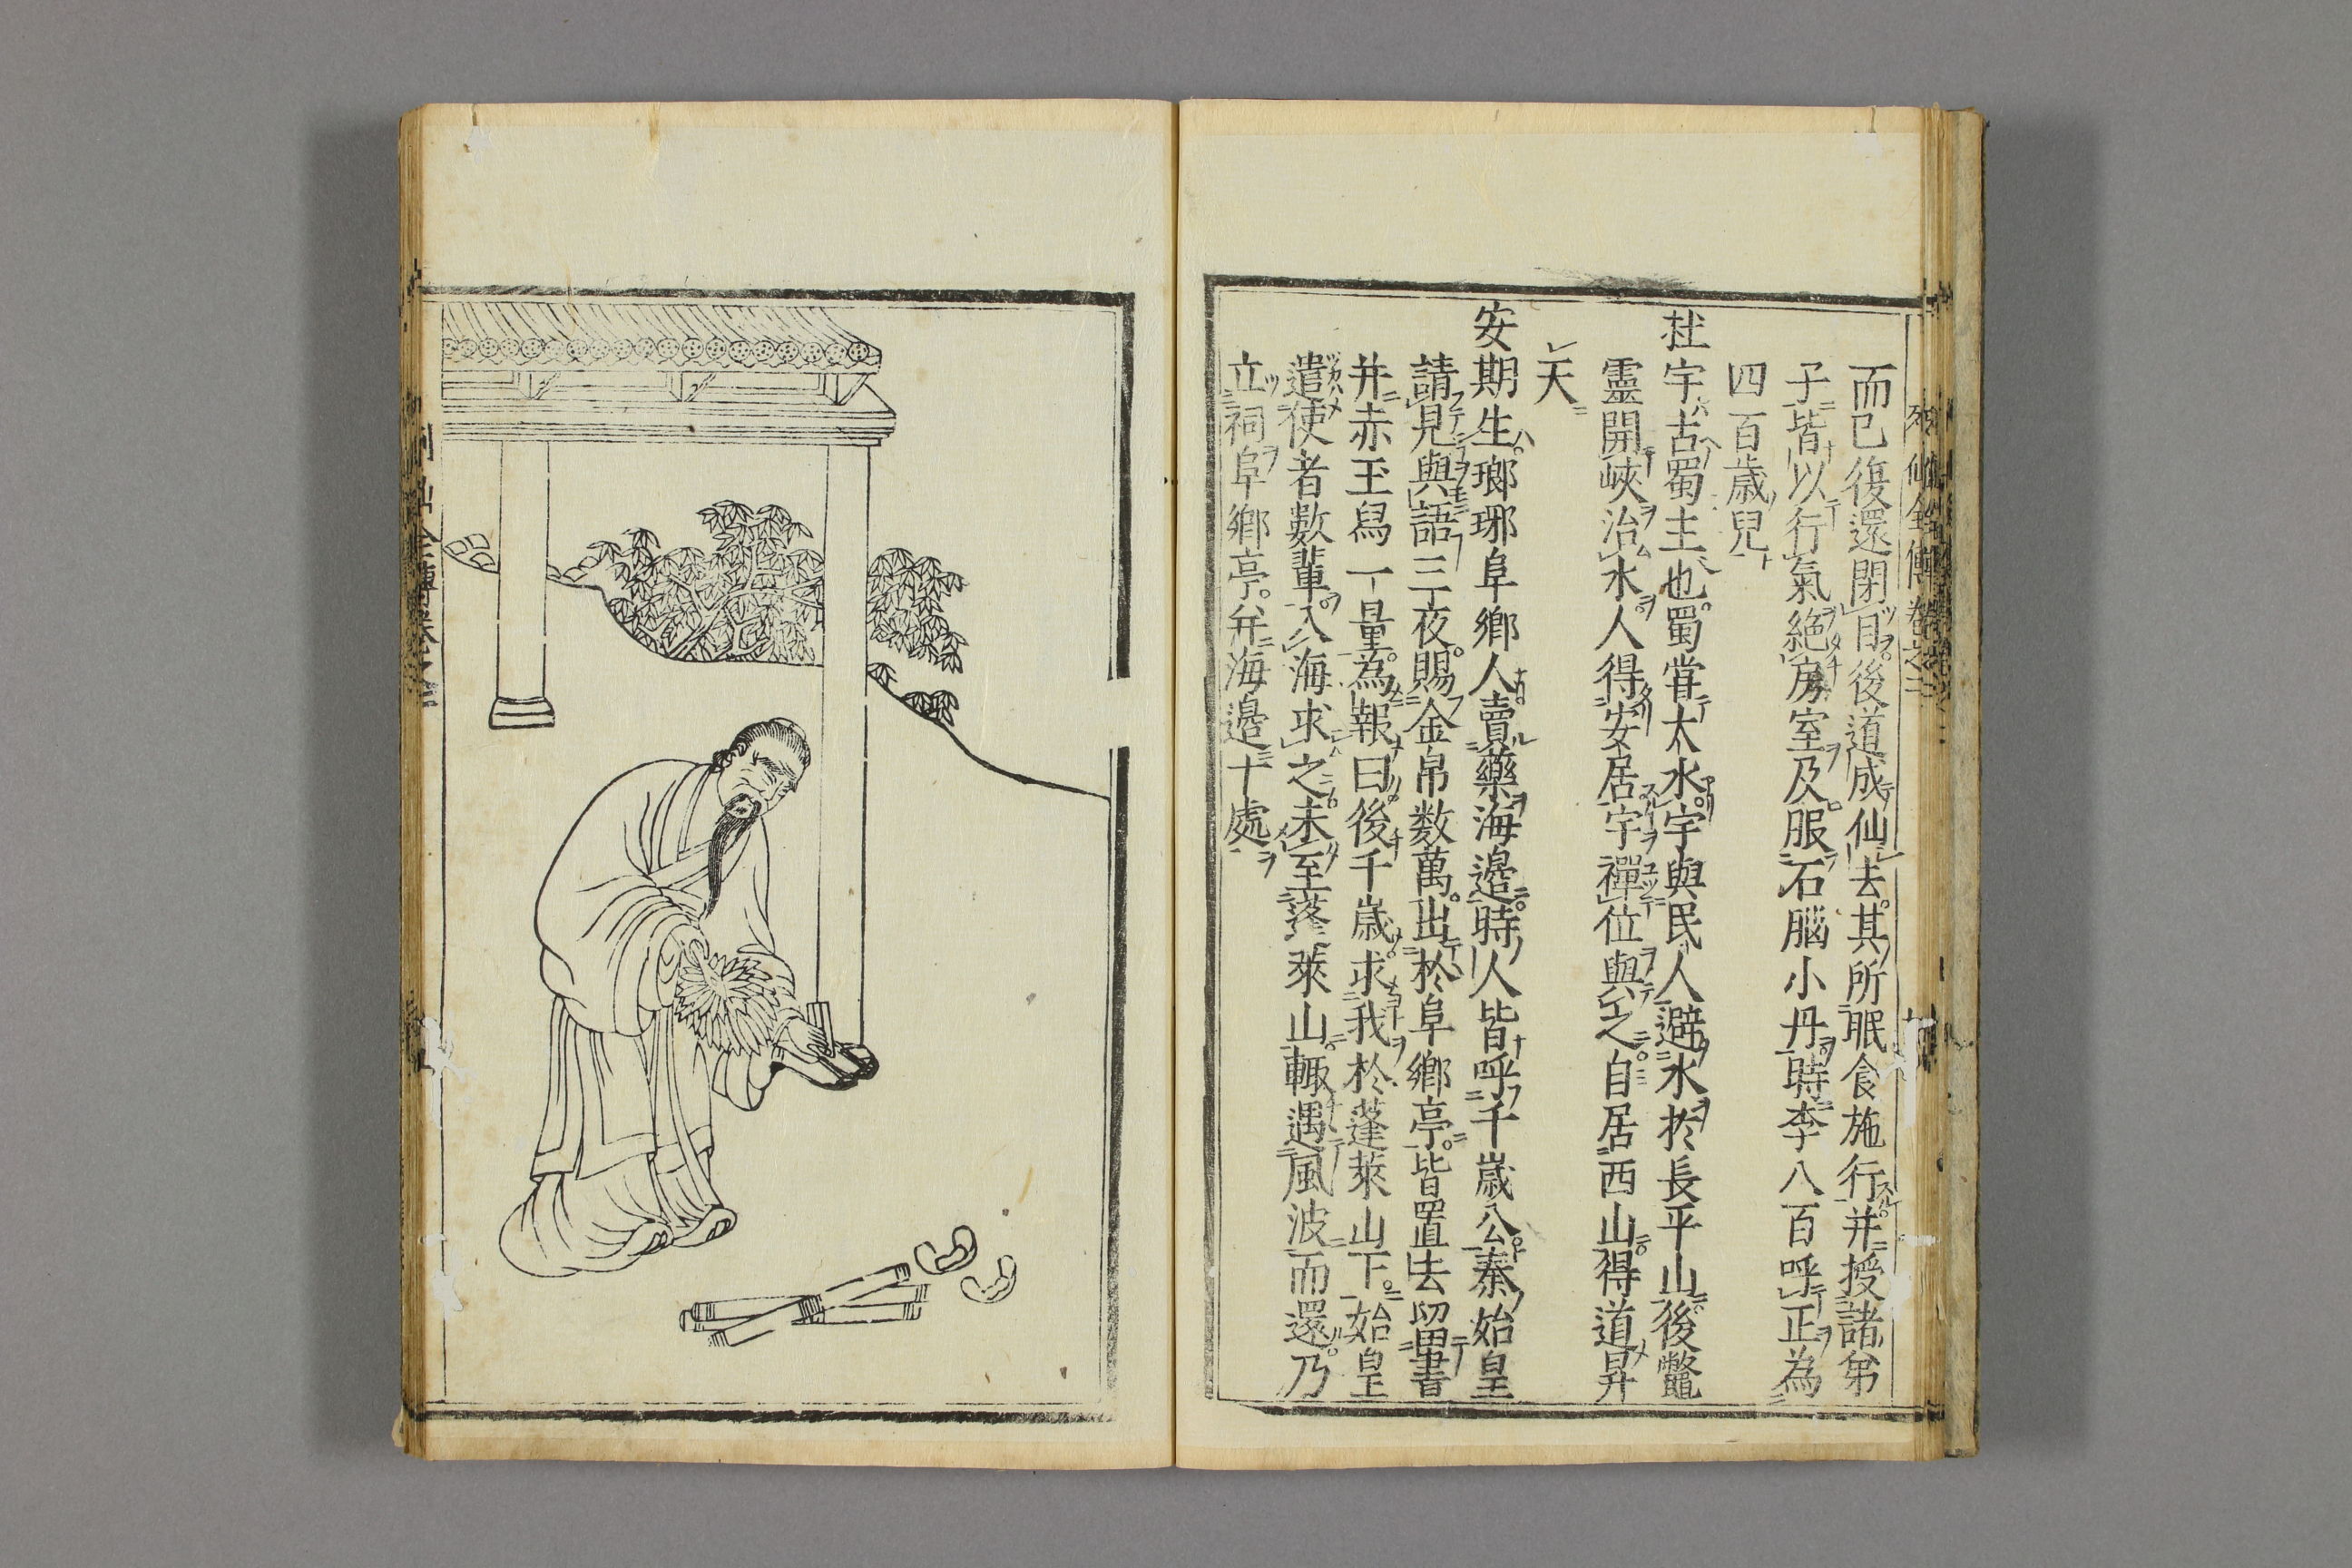 列仙全傳卷之二
而已復還閉目後道成仙去其所眠食施行并授諸弟
子皆以行氣絶房室及服石腦小丹時李八百呼正為
四百歳兒
杜宇古蜀主也蜀甞大水宇與民人避水於長平山後鼈
靈開峽治水人得安居宇禪位與之自居西山得道昇
天
安期生瑯琊阜鄉人賣藥海邉時人皆呼千歳公秦始皇
請見與語三夜賜金帛数萬出於阜鄉亭皆置去留書
并赤玉舄一量為報曰後千歳求我於蓬萊山下始皇
遣使者數輩入海求之未至蓬萊山輙遇風波而還乃
立祠阜鄉亭并海邉十處